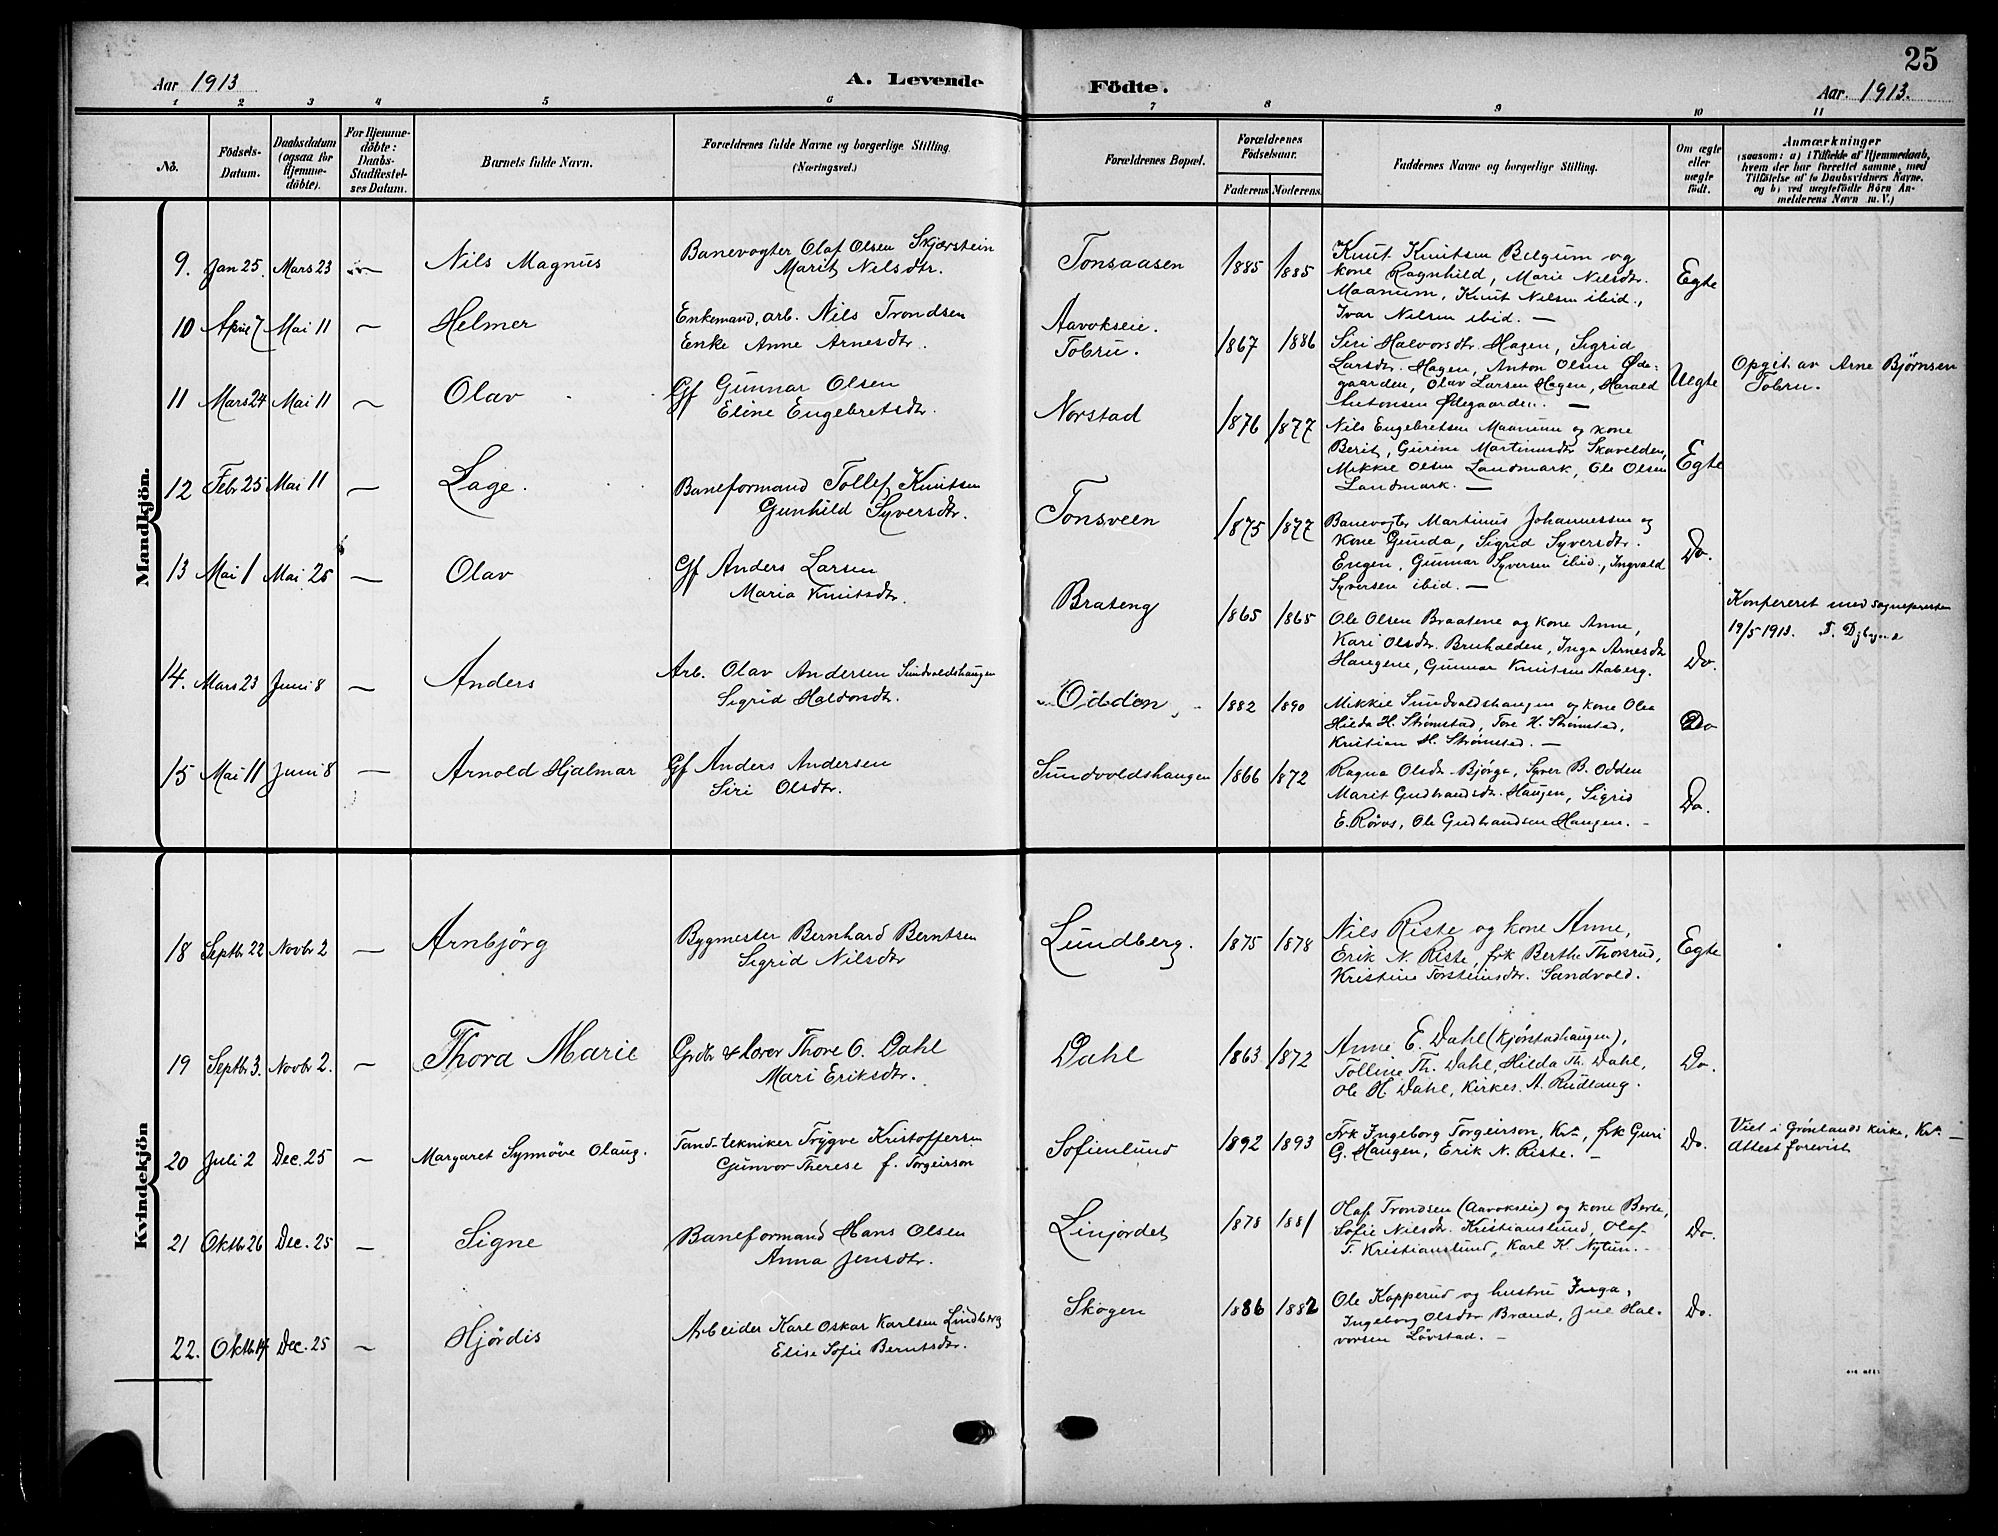 25
Aar 1913
A. Levende
Födte.
Aar. 1913.
1 2 3 4 5 6 7 8 9 10 11
No.
Födsels-
Datum.
Daabsdatum
(ogsaa for
Hjemme-
döbte).
For Hjemme-
döbte:
Daabs-
Stadfæstel-
ses Datum.
Barnets fulde Navn.
Forældrenes fulde Navne og borgerlige Stilling.
(Næringsvei.)
Forældrenes Bopæl.
Forældrenes
Födselsaar.
Faderens Moderens.
Faddernes Navne og borgerlige Stilling.
Om ægte
eller
uægte
födt.
Anmærkninger
(saasom: a) i Tilfælde af Hjemmedaab,
hvem der har forrettet samme, med
Tilföielse af to Daabsvidners Navne.
og b) ved uægtefödte Börn An-
melderens Navn m. V.)
Mandkjön.
9. Jan 25. Mars 23 — Nils Magnus
Banevogter Olaf Olsen Skjærstein
Marit Nilsdtr.
Tonsaasen
1885 1885
Knut Knutsen Belgum og
kone Ragnhild, Marie Nilsdtr.
Maanum, Knut Nilsen ibid.,
Ivar Nilsen ibid. —
Egte
10 April 7 Mai 11 — Helmer
Enkemand, arb. Nils Trondsen
Enke Anne Arnesdtr.
Aavokseie.
Tobru.
1867 1886
Siri Halvorsdtr. Hagen, Sigrid
Larsdtr. Hagen, Anton Olsen Øde-
gaarden, Olav Larsen Hagen, Harald
Antonsen Ødegaarden. —
Uegte
Opgit av Arne Bjørnsen
Tobru.
11 Mars 24 Mai 11 — Olav
Gf Gunnar Olsen
Eline Engebretsdtr.
Norstad
1876 1877
Nils Engebretsen Maanum og kone
Berit, Gurine Martinusdtr Skavelden,
Mikkel Olsen Landmark, Ole Olsen
Landmark. —
Egte
12 Febr 25 Mai 11 — Lage.
Baneformand Tollef Knutsen
Gunhild Syversdtr.
Tonsveen
1875 1877
Banevogter Martinus Johannessen og
kone Gunda, Sigrid Syversdtr.
Engen, Gunnar Syversen ibid., Ingvald
Syversen ibid. —
Do.
13 Mai 1 Mai 25 — Olav
Gf Anders Larsen
Maria Knutsdtr.
Brateng
1865 1865
Ole Olsen Braatene og kone Anne,
Kari Olsdtr. Bruhalden, Inga Arnesdtr
Haugene, Gunnar Knutsen Aaberg.
Do.
Konfereret med sognepresten
19/5 1913.
14. Mars 23 Juni 8 — Anders
Arb. Olav Andersen Sundvoldshaugen
Sigrid Haldorsdtr.
Odden
1882 1890
Mikkel Sundvoldshaugen og kone Olea
Hilda H. Strømstad, Tore H. Strømstad,
Kristian H. Strømstad. —
Do
15 Mai 11 Juni 8 — Arnold Hjalmar
Gf Anders Andersen
Siri Olsdtr.
Sundvoldshaugen
1866 1872
Ragna Olsdtr Bjørge, Syver B. Odden
Marit Gudbrandsdtr. Haugen, Sigrid
E. Røros, Ole Gudbrandsen Haugen. —
Do.
Kvindekjön
18 Septbr 22 Novbr 2 — Arnbjörg
Bygmester Bernhard Berntsen
Sigrid Nilsdtr
Lundberg.
1875 1878
Nils Riste og kone Anne,
Erik N. Riste, frk Berthe Thorsrud,
Kristine Torsteinsdtr. Sandvold.
Egte
19 Septbr 3. Novbr 2. — Thora Marie
Grdbr & lærer Thore O. Dahl
Mari Eriksdtr.
Dahl
1863 1872
Anne E. Dahl (Kjøstadhaugen),
Tolline Th. Dahl, Hilda Th. Dahl,
Ole H. Dahl, Kirkes. A. Rudlang.
Do.
20 Juli 2 Dec. 25 — Margaret Synnöve Olaug.
Tand-tekniker Trygve Kristoffersen
Gunvor Therese f. Torgeirson
Sofienlund
1892 1893
Frk Ingeborg Torgeirson, Kra, frk Guri
G. Haugen, Erik N. Riste. —
Do.
Viet i Grönlands kirke, Kra. —
Attest forevist
21 Oktbr 26 Dec. 25 — Signe
Baneformand Hans Olsen
Anna Jensdtr.
Linjordet
1878 1881
Olaf Trondsen (Aavokseie) og kone Berte,
Sofie Nilsdtr. Kristianslund, Olaf
T. Kristianslund, Karl K. Nytun. —
Do.
22. Oktbr 14 Dec. 25 — Hjördis
Arbeider Karl Oskar Karlsen Lindberg
Elise Sofie Berntsdtr.
Skogen
1886 1882
Ole Kopperud og hustru Inga,
Ingeborg Olsdtr Brænd, Juel Hal-
vorsen Lövstad. —
Do.